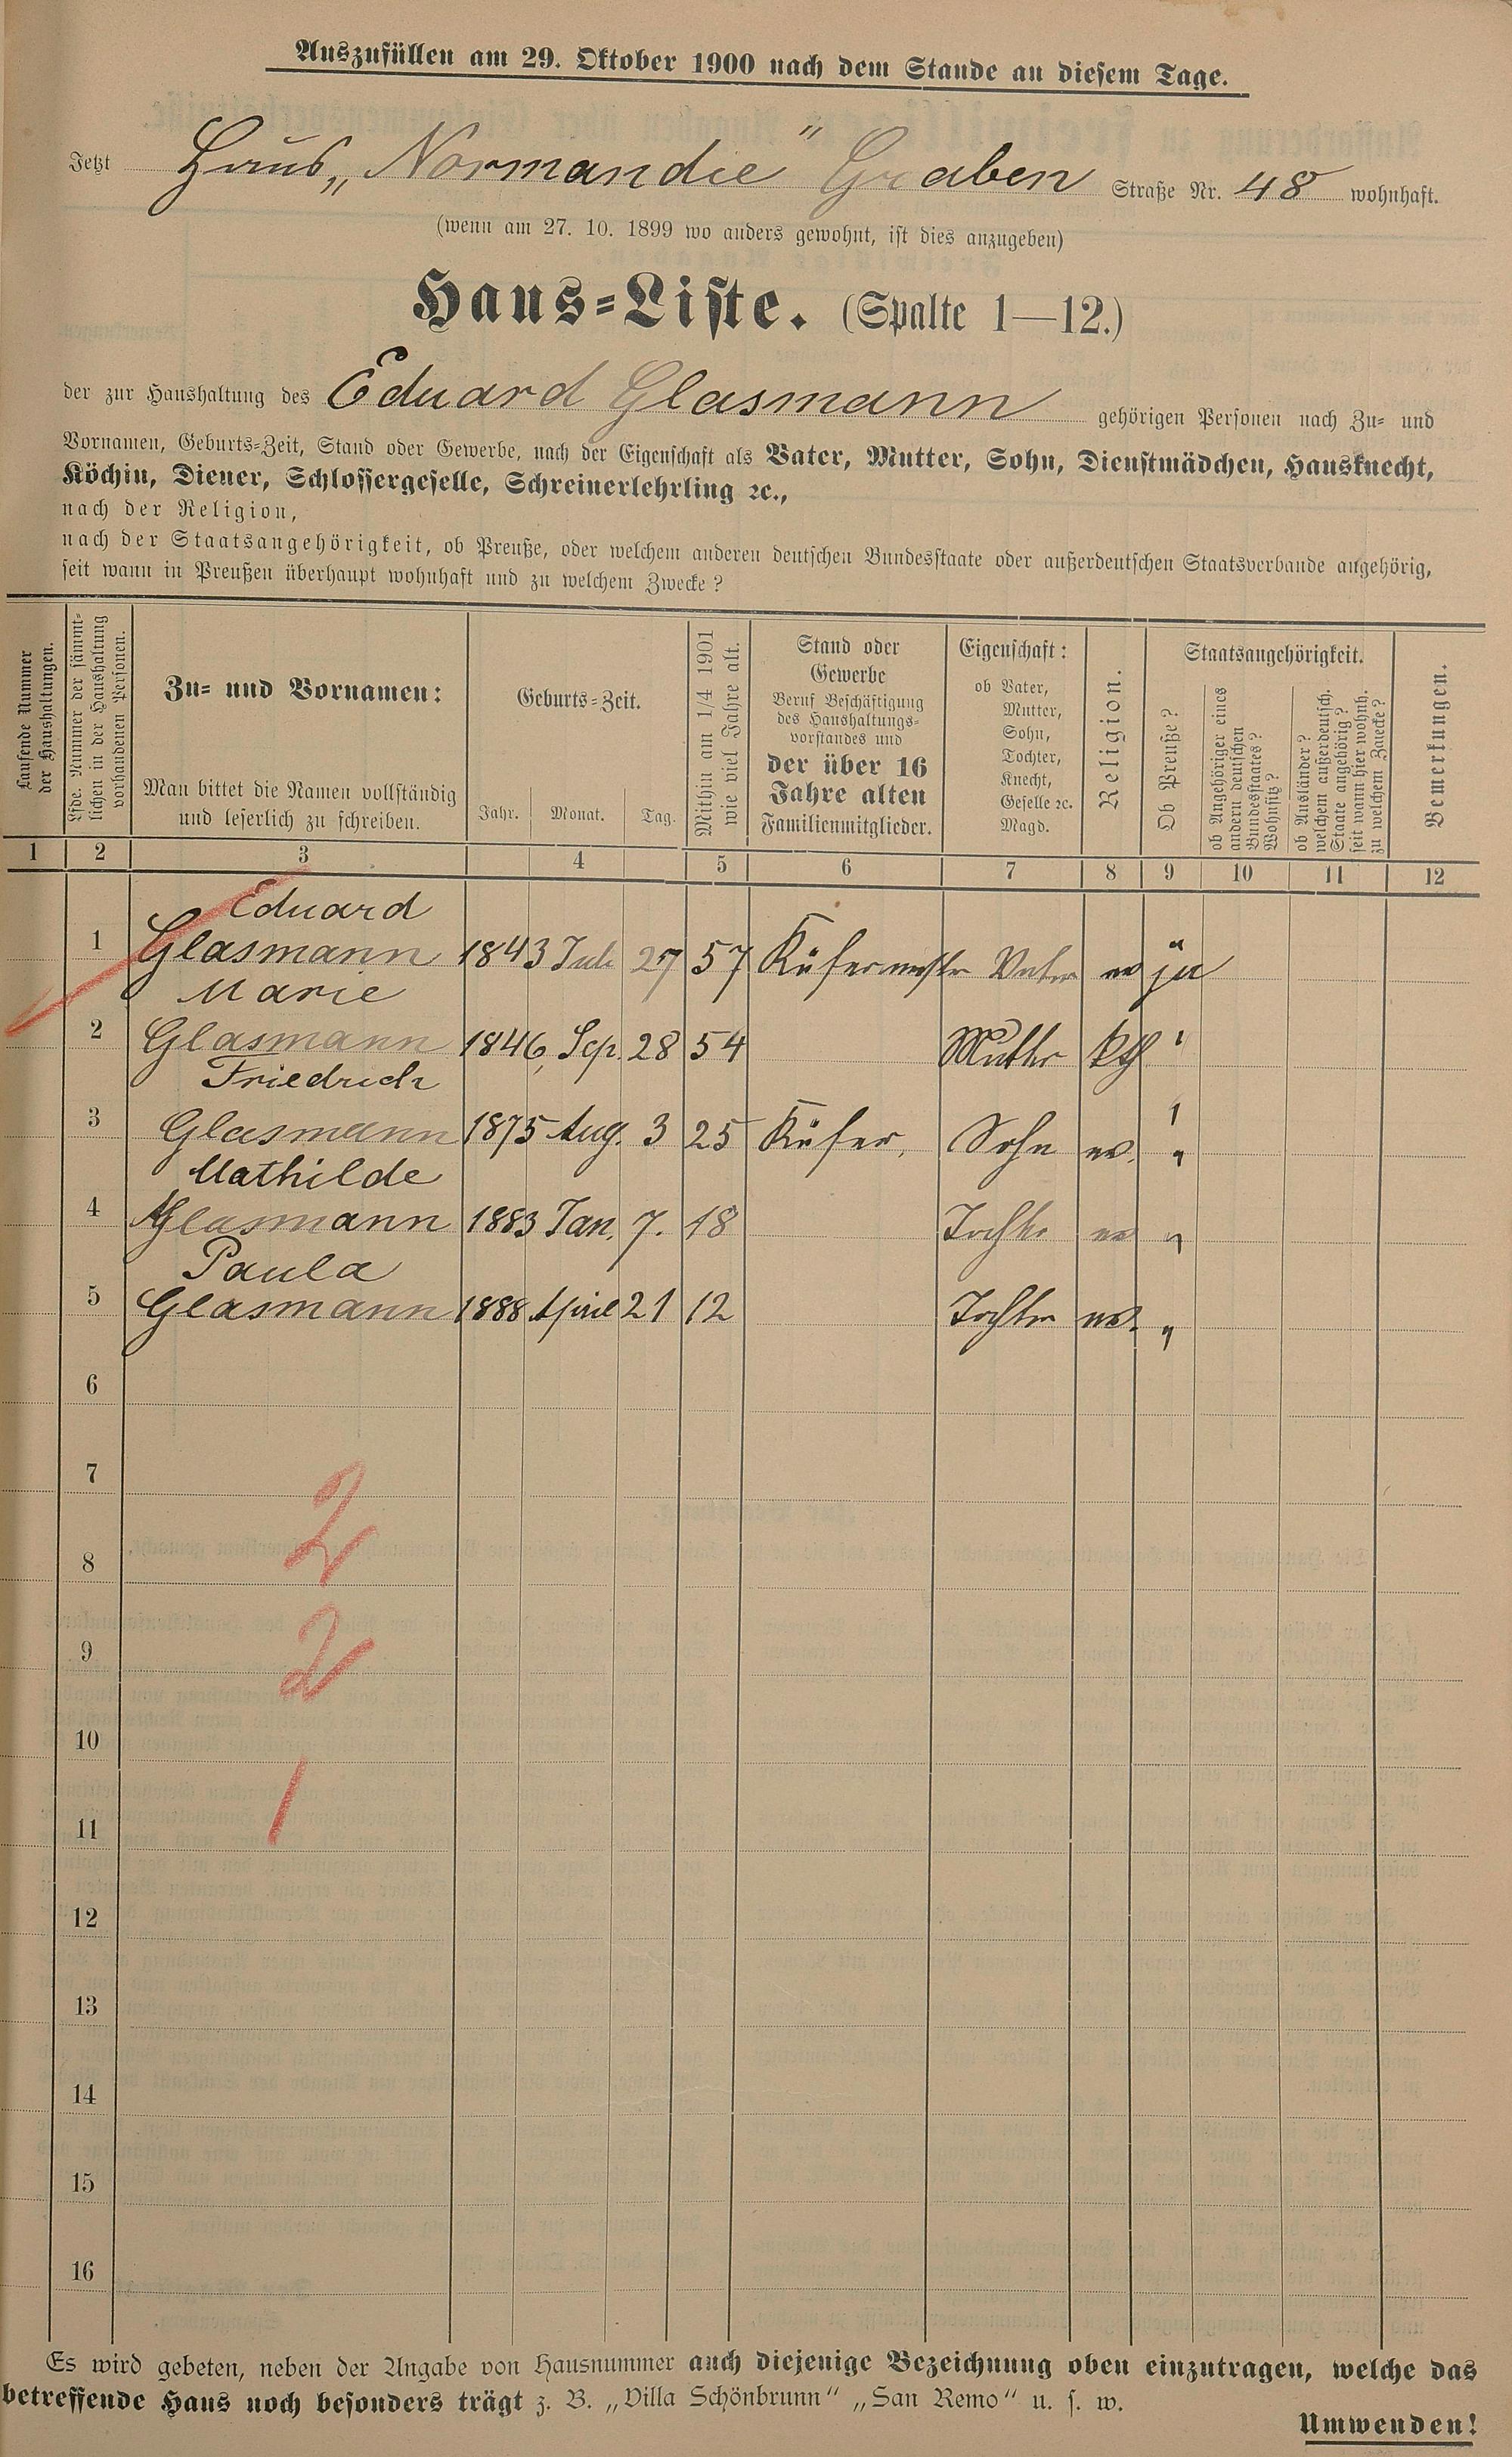 Auszufüllen am 29. Oktober 1900 nach dem Stande an diesem Tage.
Jetzt Haus „Normandie" Graben Straße Nr. 48 wohnhaft.
(wenn am 27. 10. 1899 wo anders gewohnt, ist dies anzugeben)
Haus-Liste. (Spalte 1—12.)
der zur Haushaltung des Eduard Glasmann gehörigen Personen nach Zu- und
Vornamen, Geburts-Zeit, Stand oder Gewerbe, nach der Eigenschaft als Vater, Mutter, Sohn, Dienstmädchen, Hausknecht,
Köchin, Diener, Schlossergeselle, Schreinerlehrling ꝛc.,
nach der Religion,
nach der Staatsangehörigkeit, ob Preuße, oder welchem anderen deutschen Bundesstaate oder außerdeutschen Staatsverbande angehörig,
seit wann in Preußen überhaupt wohnhaft und zu welchem Zwecke?
Laufende Nummer
der Haushaltungen.
Lfde. Nummer der sämmt-
lichen in der Haushaltung
vorhandenen Personen.
Zu- und Vornamen:
Man bittet die Namen vollständig
und leserlich zu schreiben.
Geburts-Zeit.
Jahr. Monat. Tag.
Mithin am 1/4 1901
wie viel Jahre alt.
Stand oder
Gewerbe
Beruf Beschäftigung
des Haushaltungs-
vorstandes und
der über 16
Jahre alten
Familienmitglieder.
Eigenschaft:
ob Vater,
Mutter,
Sohn,
Tochter,
Knecht,
Geselle ꝛc.
Magd.
Religion.
Staatsangehörigkeit.
Ob Preuße?
ob Angehöriger eines
andern deutschen
Bundesstaates?
Wohnsitz?
ob Ausländer?
welchem außerdeutsch.
Staate angehörig?
seit wann hier wohnh.
zu welchem Zwecke?
Bemerkungen.
1 2 3 4 5 6 7 8 9 10 11 12
Eduard
1 Glasmann 1843 Juli 27 57 Küfermeister Vater ev ja
Marie
2 Glasmann 1846 Sep. 28 54 Mutter kth "
Friedrich
3 Glasmann 1875 Aug. 3 25 Küfer, Sohn ev. "
Mathilde
4 Glasmann 1883 Jan. 7. 18 Tochter ev "
Paula
5 Glasmann 1888 April 21 12 Tochter ev. "
6
7
2
8
9 2
10
1
11
12
13
14
15
16
Es wird gebeten, neben der Angabe von Hausnummer auch diejenige Bezeichnung oben einzutragen, welche das
betreffende Haus noch besonders trägt z. B. „Villa Schönbrunn" „San Remo" u. s. w.
Umwenden!